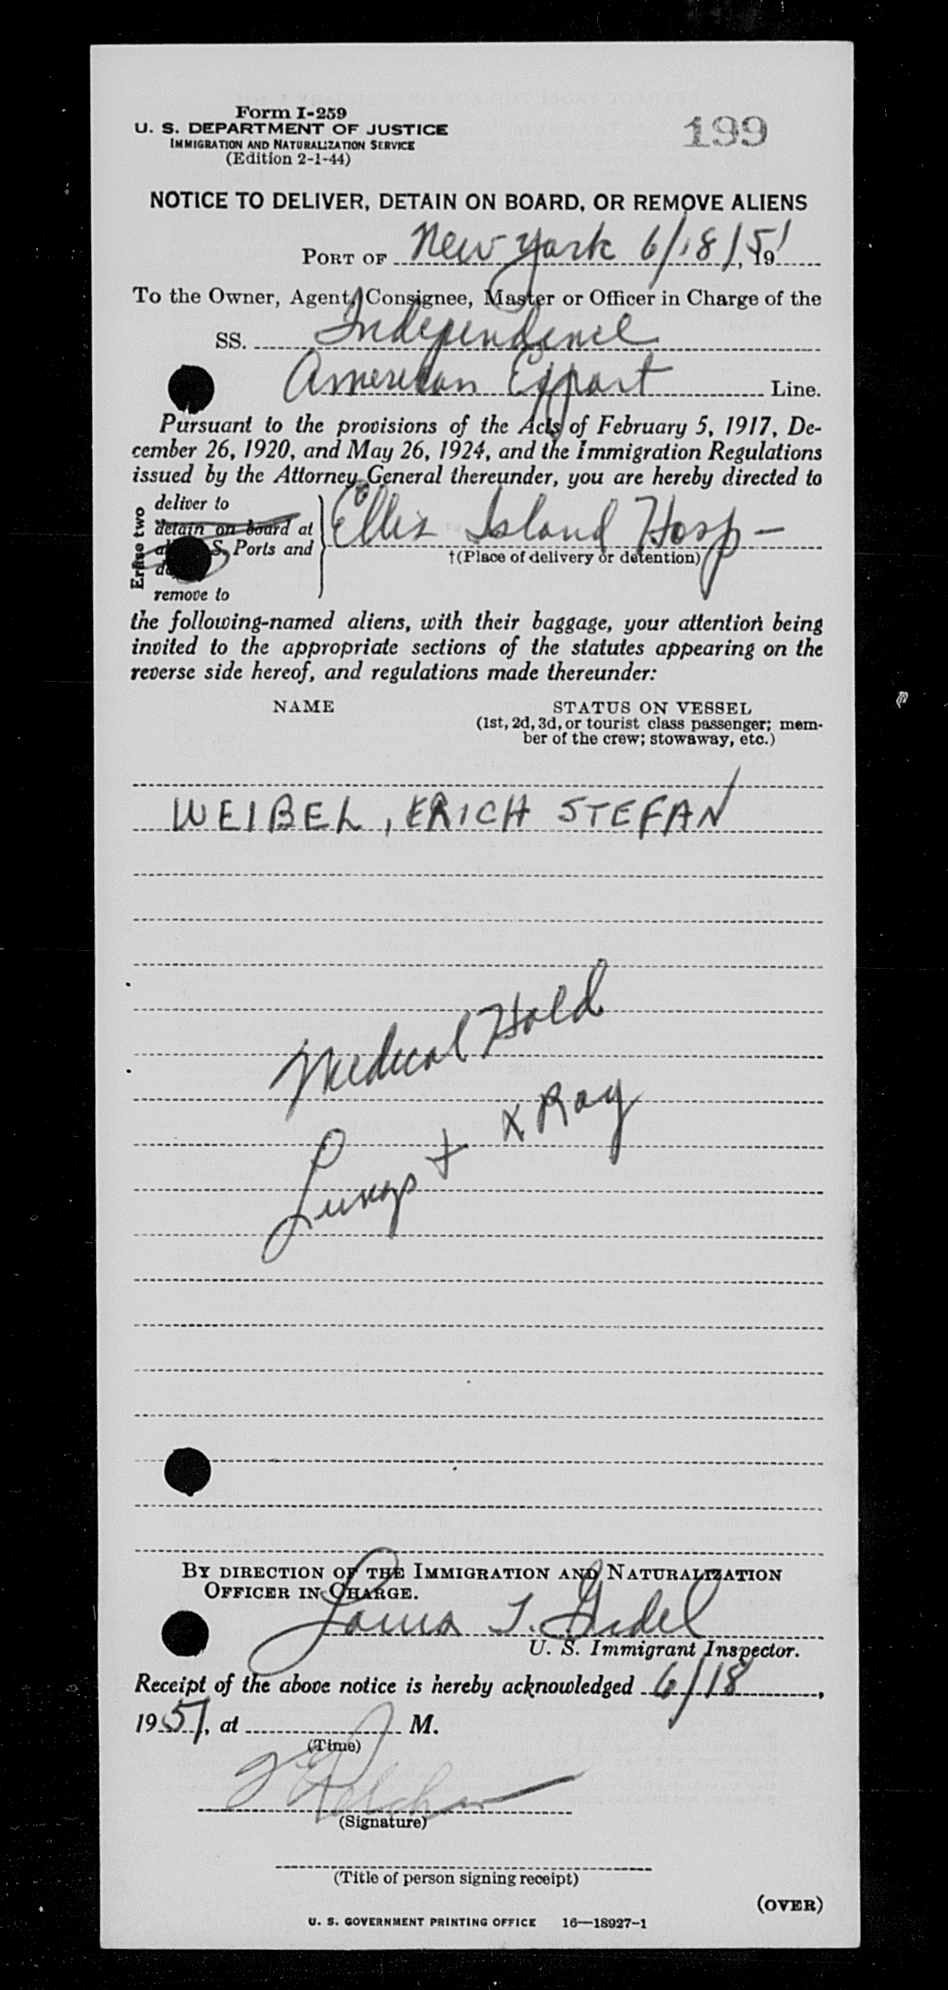 Form I-259
U. S. DEPARTMENT OF JUSTICE
IMMIGRATION AND NATURALIZATION SERVICE
(Edition 2-1-44)
199
NOTICE TO DELIVER, DETAIN ON BOARD, OR REMOVE ALIENS
PORT OF New York 6/18/51, 19
To the Owner, Agent, Consignee, Master or Officer in Charge of the
SS. Independence
American Export Line.
Pursuant to the provisions of the Acts of February 5, 1917, De-
cember 26, 1920, and May 26, 1924, and the Immigration Regulations
issued by the Attorney General thereunder, you are hereby directed to
Erase two
deliver to
detain on board at
S. Ports and
remove to
Ellis Island Hosp -
†(Place of delivery or detention)
the following-named aliens, with their baggage, your attention being
invited to the appropriate sections of the statutes appearing on the
reverse side hereof, and regulations made thereunder:
NAME
STATUS ON VESSEL
(1st, 2d, 3d, or tourist class passenger; mem-
ber of the crew; stowaway, etc.)
WEIBEL, ERICH STEFAN
Medical Hold
Lungs + X Ray
BY DIRECTION OF THE IMMIGRATION AND NATURALIZATION
OFFICER IN CHARGE.
U. S. Immigrant Inspector.
Receipt of the above notice is hereby acknowledged 6/18,
1951, at M.
(Time)
(Signature)
(Title of person signing receipt)
(OVER)
U. S. GOVERNMENT PRINTING OFFICE 16—18927-1